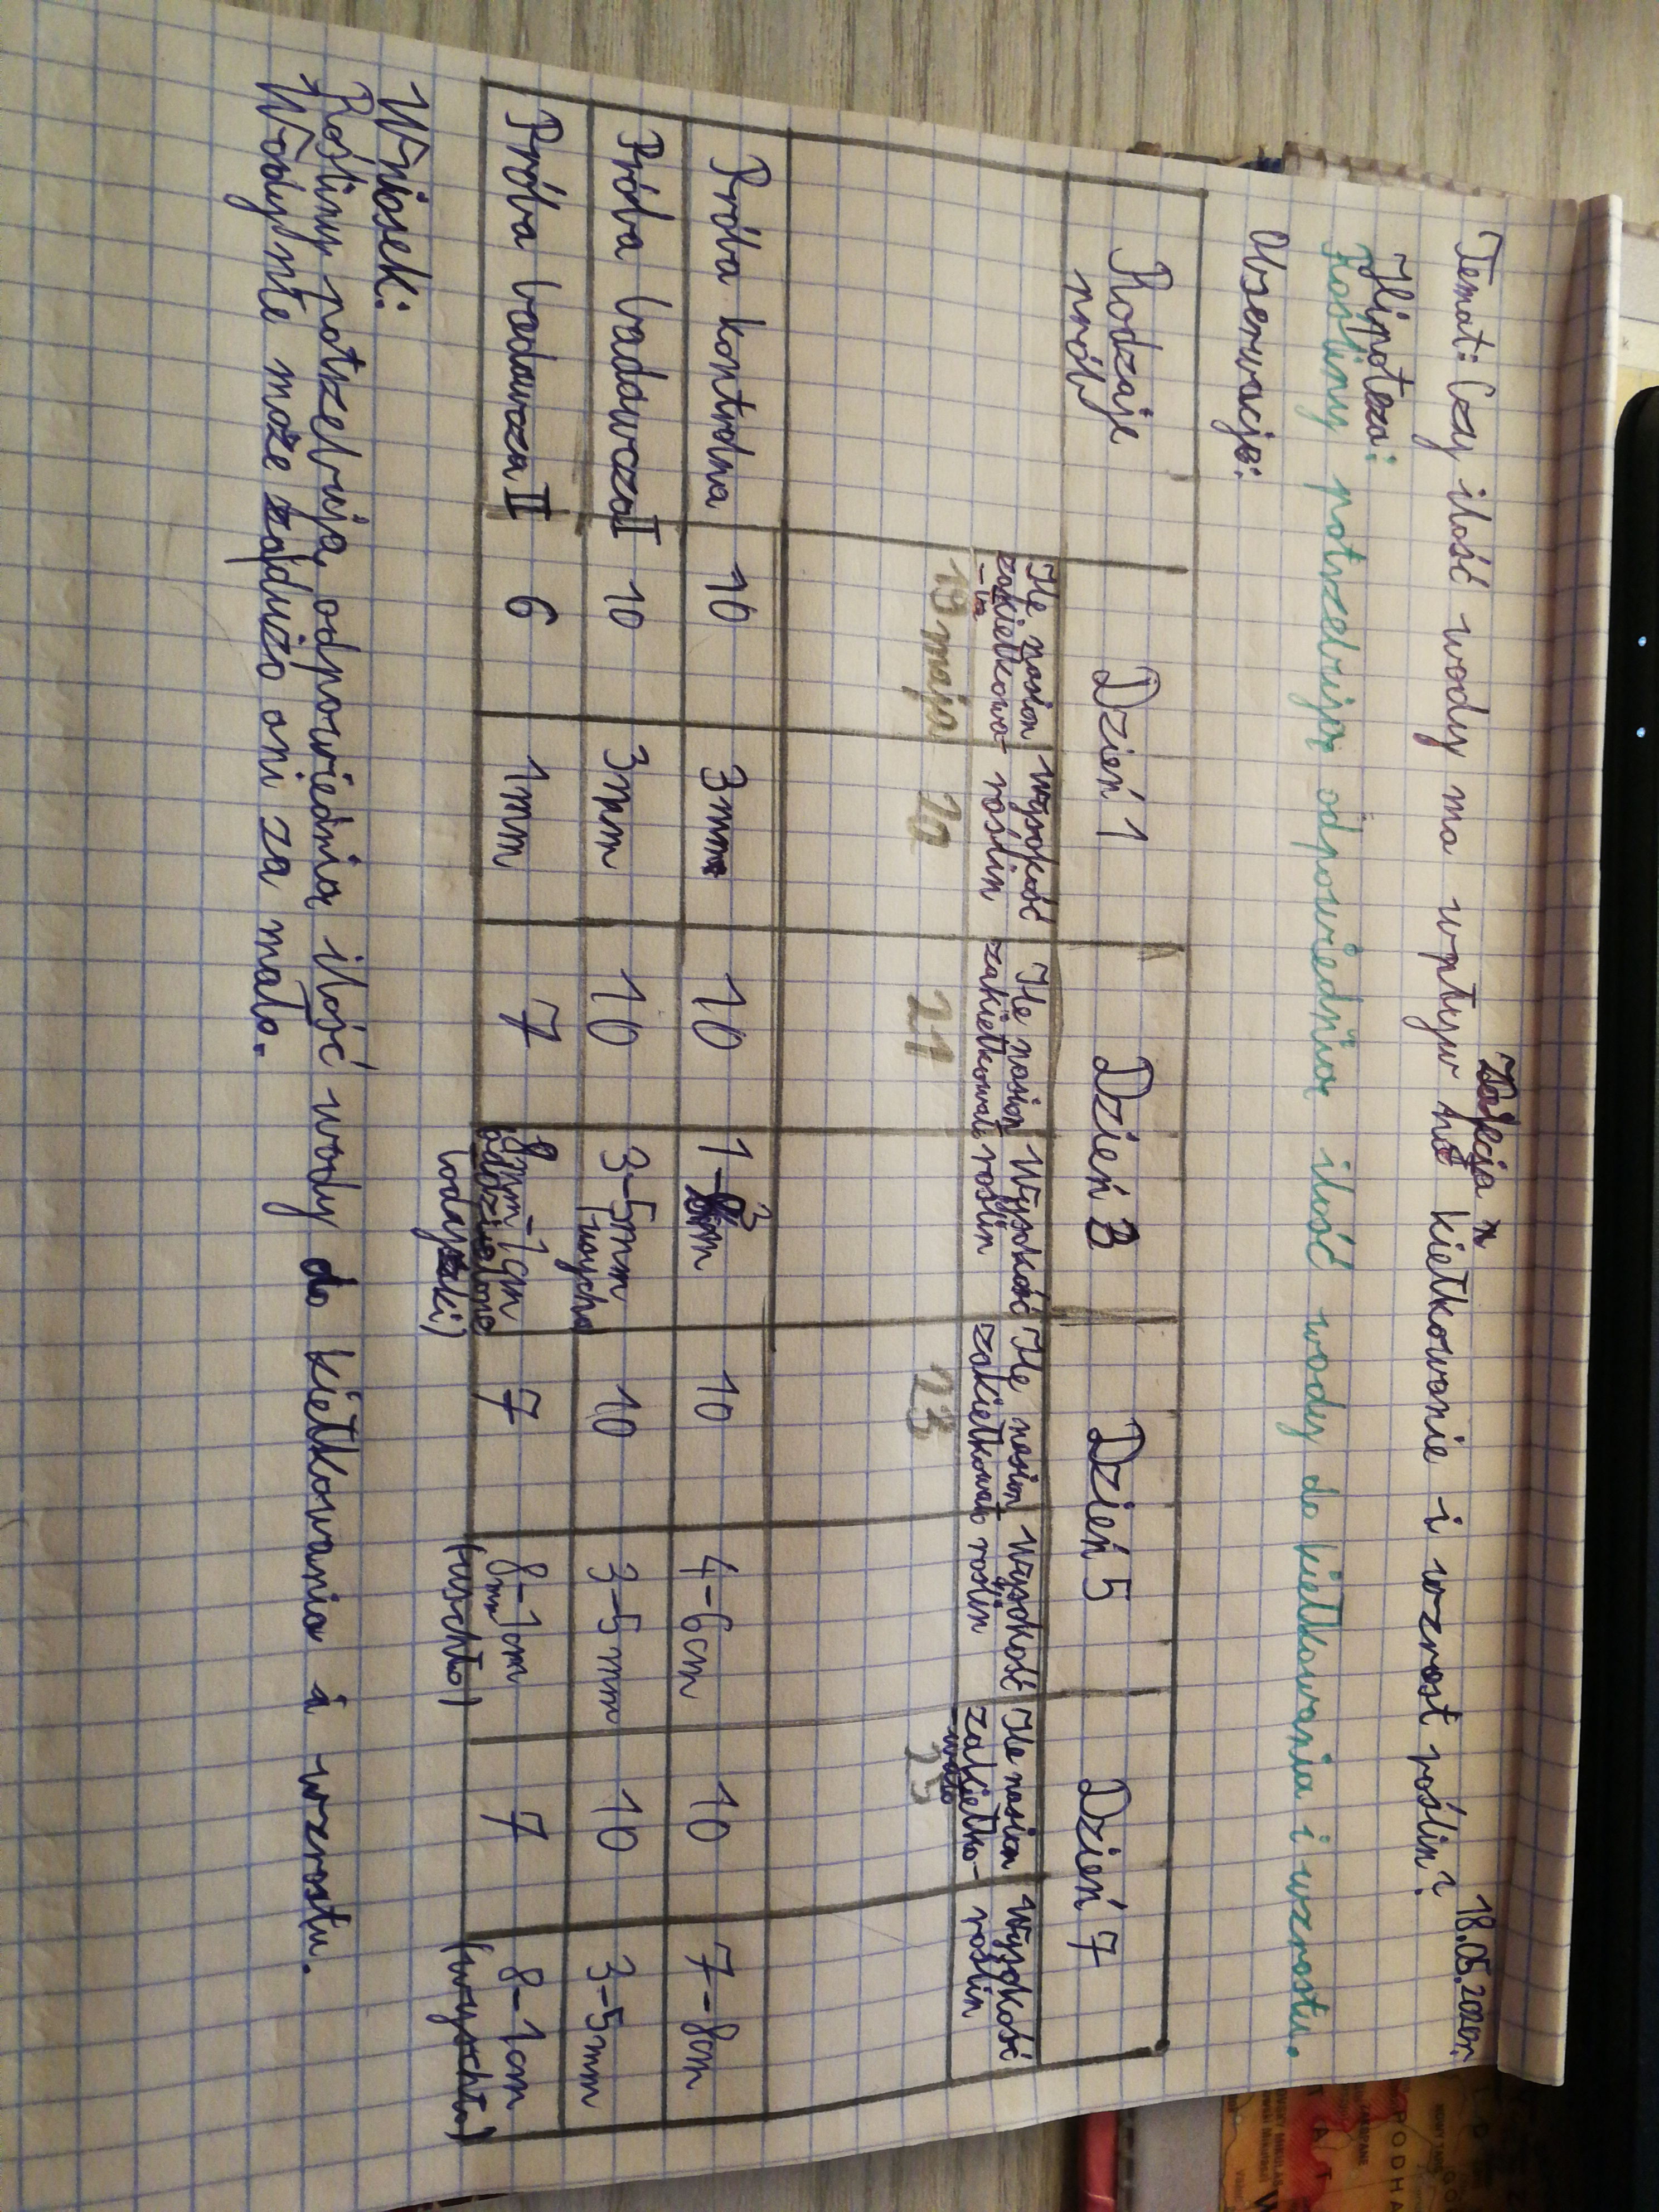 18.05.2020r.
Temat: Czy ilość wody ma wpływ na kiełkowanie i wzrost roślin?
Hipoteza:
Rośliny potrzebują odpowiednią ilość wody do kiełkowania i wzrostu.
Obserwacje:
Rodzaje prób Dzień 1 Dzień 3 Dzień 5 Dzień 7
Ile nasion wysokość Ile nasion Wysokość Ile nasion Wysokość Ile nasion Wysokość
zakiełkowa- roślin zakiełkowało roślin zakiełkowało roślin zakiełko- roślin
-ło -wało
19 maja 20 21 23 25
Próba kontrolna 10 3mm 10 1-3cm 10 4-6cm 10 7-8cm
Próba badawcza I 10 3mm 10 3-5mm 10 3-5mm 10 3-5mm
Próba badawcza II 6 1mm 7 8mm-1cm 7 8mm-1cm 7 8-1cm
(uschło) (wyschło)
Wniosek:
Rośliny potrzebują odpowiednią ilość wody do kiełkowania i wzrostu.
Wody nie może za dużo ani za mało.